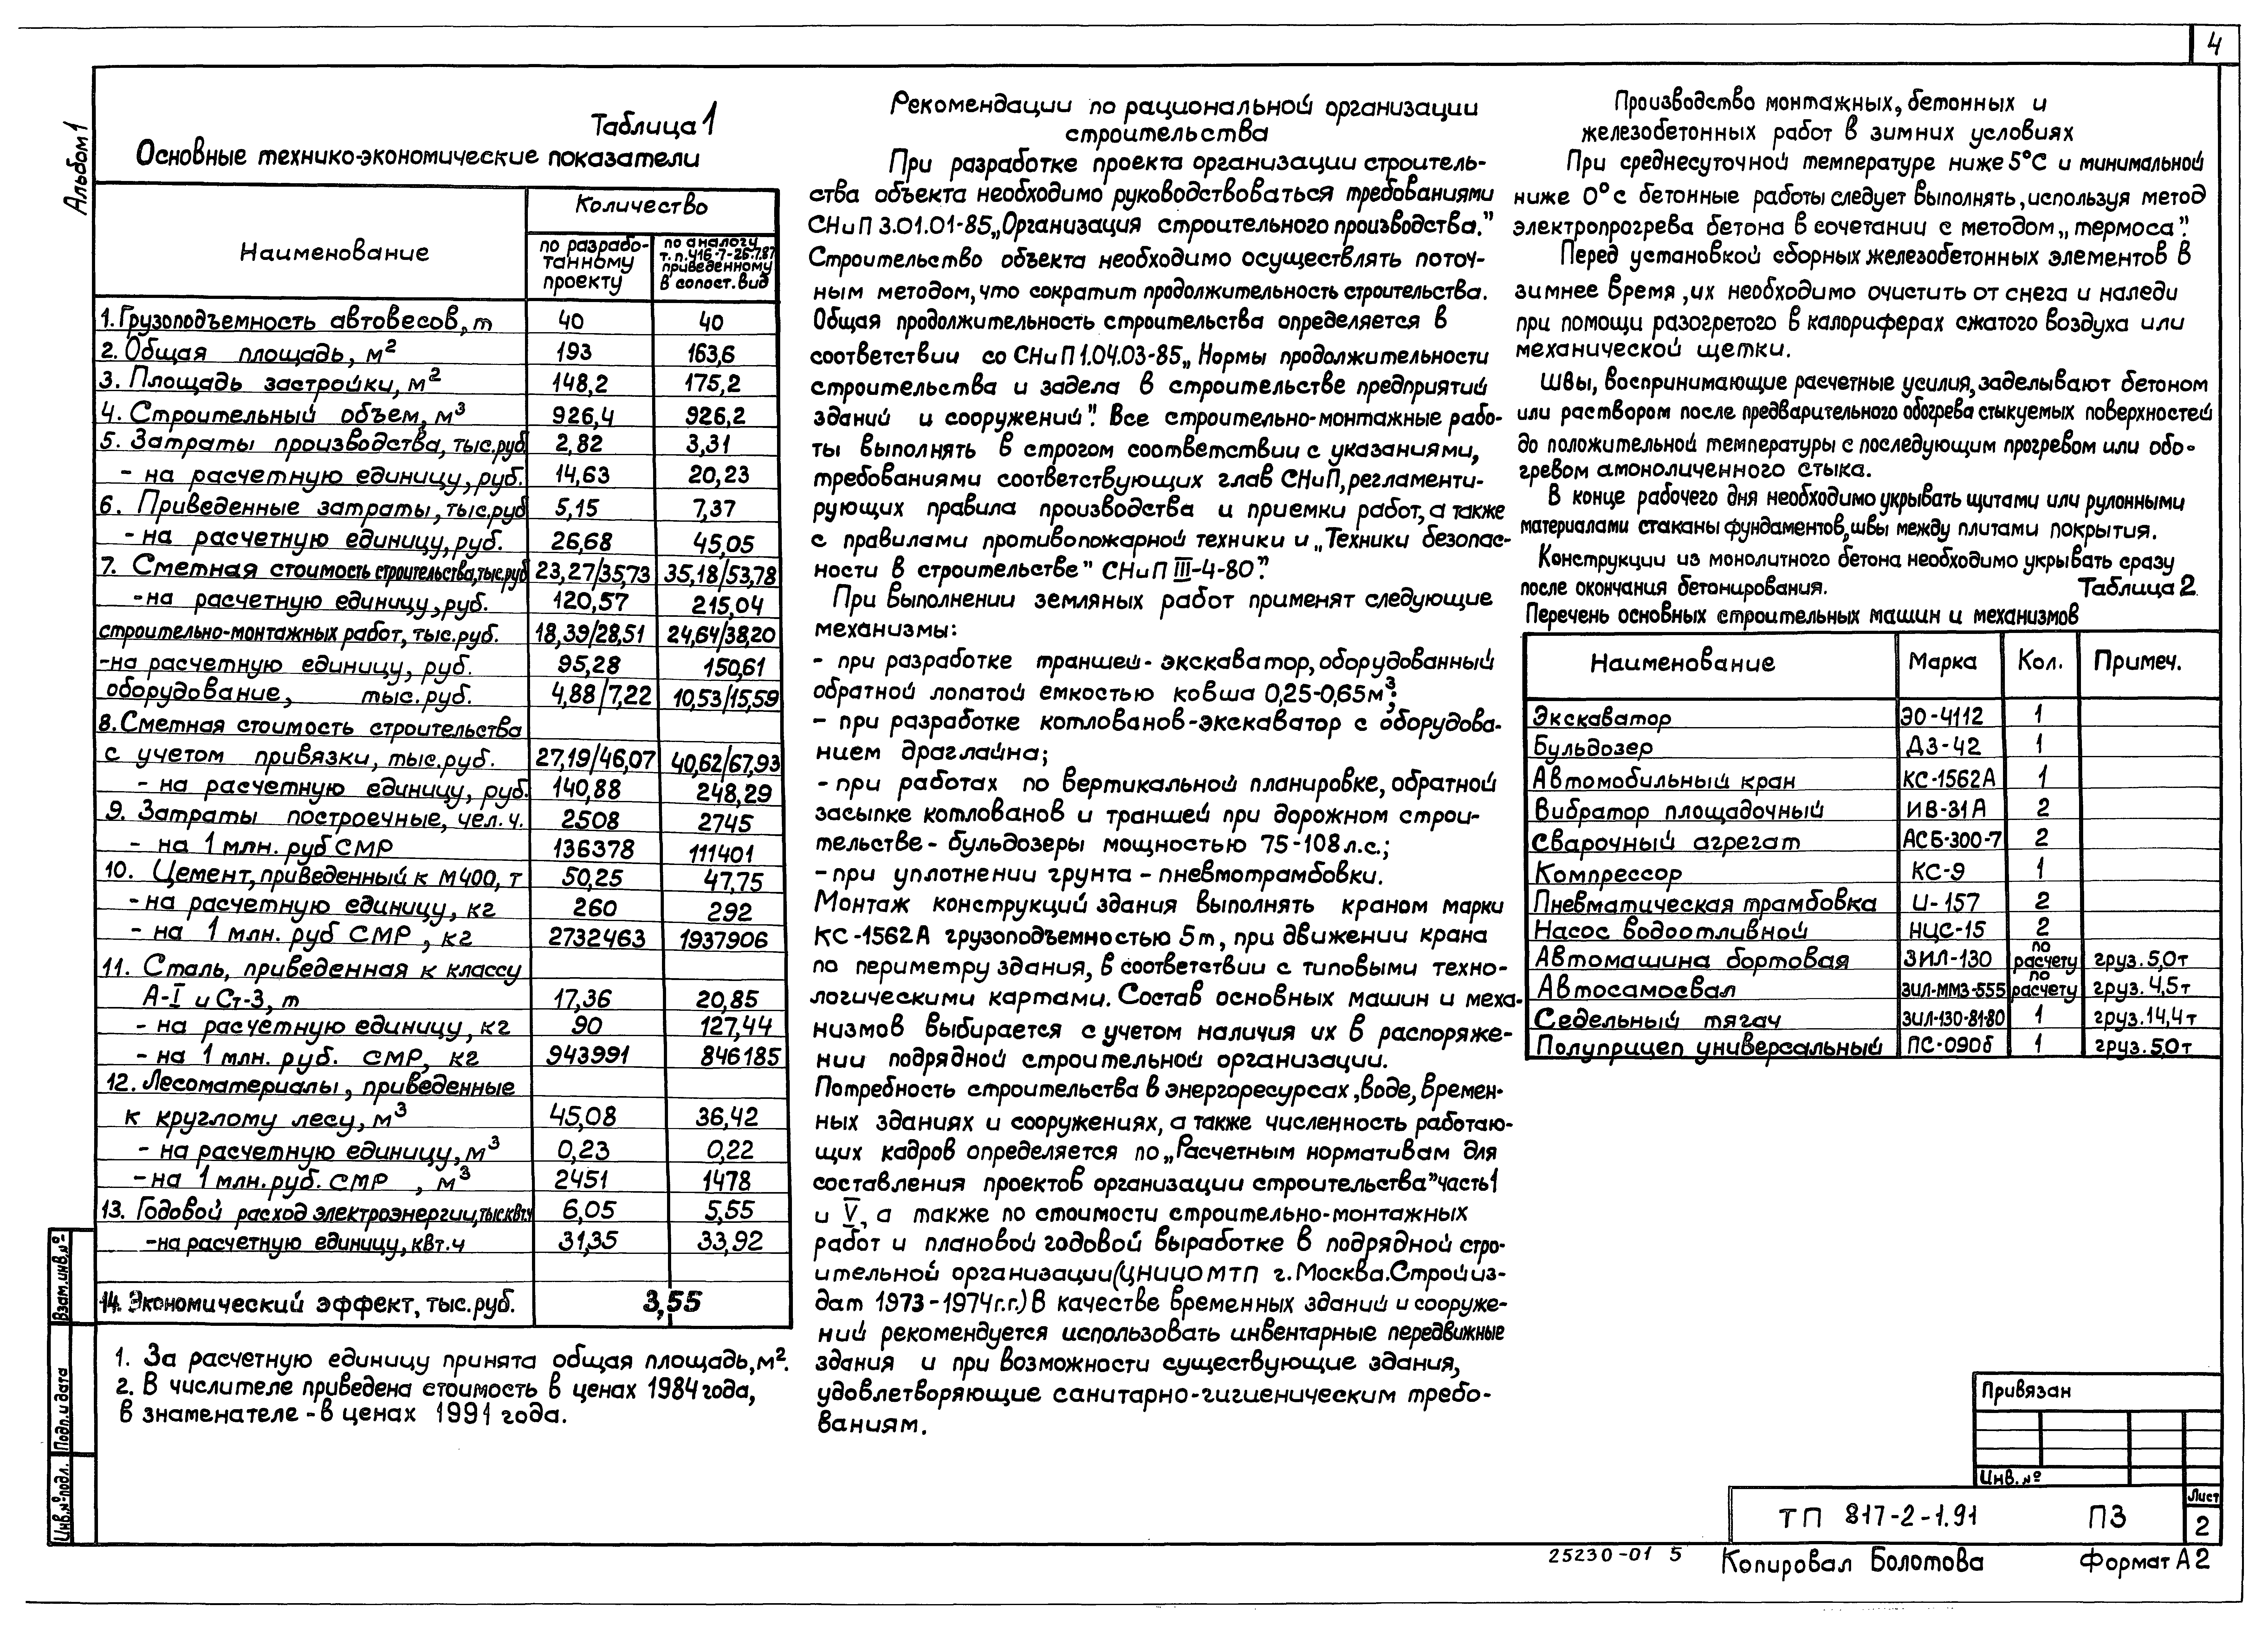 4
Альбом 1
Таблица 1
Основные технико-экономические показатели
Наименование
Количество
по разрабо-
танному
проекту
по аналогу
т.п. 416-7-25.7.87
приведенному
в сопост. вид
1. Грузоподъемность автовесов, т 40 40
2. Общая площадь, м² 193 163,6
3. Площадь застройки, м² 148,2 175,2
4. Строительный объем, м³ 926,4 926,2
5. Затраты производства, тыс.руб 2,82 3,31
- на расчетную единицу, руб. 14,63 20,23
6. Приведенные затраты, тыс.руб 5,15 7,37
- на расчетную единицу, руб. 26,68 45,05
7. Сметная стоимость строительства, тыс.руб 23,27/35,73 35,18/53,78
- на расчетную единицу, руб. 120,57 215,04
строительно-монтажных работ, тыс.руб. 18,39/28,51 24,64/38,20
- на расчетную единицу, руб. 95,28 150,61
оборудование, тыс.руб. 4,88/7,22 10,53/15,59
8. Сметная стоимость строительства
с учетом привязки, тыс.руб. 27,19/46,07 40,62/67,93
- на расчетную единицу, руб. 140,88 248,29
9. Затраты построечные, чел.ч. 2508 2745
- на 1 млн. руб СМР 136378 111401
10. Цемент, приведенный к М400, т 50,25 47,75
- на расчетную единицу, кг 260 292
- на 1 млн. руб СМР, кг 2732463 1937906
11. Сталь, приведенная к классу
А-I и Ст-3, т 17,36 20,85
- на расчетную единицу, кг 90 127,44
- на 1 млн. руб. СМР, кг 943991 846185
12. Лесоматериалы, приведенные
к круглому лесу, м³ 45,08 36,42
- на расчетную единицу, м³ 0,23 0,22
- на 1 млн. руб. СМР, м³ 2451 1478
13. Годовой расход электроэнергии, тыс.квт.ч 6,05 5,55
- на расчетную единицу, квт.ч 31,35 33,92
14. Экономический эффект, тыс.руб. 3,55
1. За расчетную единицу принята общая площадь, м².
2. В числителе приведена стоимость в ценах 1984 года,
в знаменателе - в ценах 1991 года.
Рекомендации по рациональной организации
строительства
При разработке проекта организации строитель-
ства объекта необходимо руководствоваться требованиями
СНиП 3.01.01-85 „Организация строительного производства."
Строительство объекта необходимо осуществлять поточ-
ным методом, что сократит продолжительность строительства.
Общая продолжительность строительства определяется в
соответствии со СНиП 1.04.03-85 „Нормы продолжительности
строительства и задела в строительстве предприятий
зданий и сооружений". Все строительно-монтажные рабо-
ты выполнять в строгом соответствии с указаниями,
требованиями соответствующих глав СНиП, регламенти-
рующих правила производства и приемки работ, а также
с правилами противопожарной техники и „Техники безопас-
ности в строительстве" СНиП III-4-80".
При выполнении земляных работ применят следующие
механизмы:
- при разработке траншей - экскаватор, оборудованный
обратной лопатой емкостью ковша 0,25-0,65м³;
- при разработке котлованов-экскаватор с оборудова-
нием драглайна;
- при работах по вертикальной планировке, обратной
засыпке котлованов и траншей при дорожном строи-
тельстве - бульдозеры мощностью 75-108 л.с.;
- при уплотнении грунта - пневмотрамбовки.
Монтаж конструкций здания выполнять краном марки
КС-1562А грузоподъемностью 5т, при движении крана
по периметру здания, в соответствии с типовыми техно-
логическими картами. Состав основных машин и меха-
низмов выбирается с учетом наличия их в распоряже-
нии подрядной строительной организации.
Потребность строительства в энергоресурсах, воде, времен-
ных зданиях и сооружениях, а также численность работаю-
щих кадров определяется по „Расчетным нормативам для
составления проектов организации строительства" часть 1
и V, а также по стоимости строительно-монтажных
работ и плановой годовой выработке в подрядной стро-
ительной организации (ЦНИИОМТП г. Москва. Стройиз-
дат 1973-1974г.г.) В качестве временных зданий и сооруже-
ний рекомендуется использовать инвентарные передвижные
здания и при возможности существующие здания,
удовлетворяющие санитарно-гигиеническим требо-
ваниям.
Производство монтажных, бетонных и
железобетонных работ в зимних условиях
При среднесуточной температуре ниже 5°С и минимальной
ниже 0°с бетонные работы следует выполнять, используя метод
электропрогрева бетона в сочетании с методом „термоса".
Перед установкой сборных железобетонных элементов в
зимнее время, их необходимо очистить от снега и наледи
при помощи разогретого в калориферах сжатого воздуха или
механической щетки.
Швы, воспринимающие расчетные усилия, заделывают бетоном
или раствором после предварительного обогрева стыкуемых поверхностей
до положительной температуры с последующим прогревом или обо-
гревом амоноличенного стыка.
В конце рабочего дня необходимо укрывать щитами или рулонными
материалами стаканы фундаментов, швы между плитами покрытия.
Конструкции из монолитного бетона необходимо укрывать сразу
после окончания бетонирования. Таблица 2
Перечень основных строительных машин и механизмов
Наименование Марка Кол. Примеч.
Экскаватор ЭО-4112 1
Бульдозер ДЗ-42 1
Автомобильный кран КС-1562А 1
Вибратор площадочный ИВ-31А 2
Сварочный агрегат АСБ-300-7 2
Компрессор КС-9 1
Пневматическая трамбовка И-157 2
Насос водоотливной НЦС-15 2
Автомашина бортовая ЗИЛ-130 по расчету груз. 5,0т
Автосамосвал ЗИЛ-ММЗ-555 по расчету груз. 4,5т
Седельный тягач ЗИЛ-130-81-80 1 груз. 14,4т
Полуприцеп универсальный ПС-0906 1 груз. 5,0т
Взам. инв. №
Подп. и дата
Инв. № подл.
Привязан
Инв. №
ТП 817-2-1.91 ПЗ
Лист
2
25230-01 5
Копировал Болотова
Формат А2